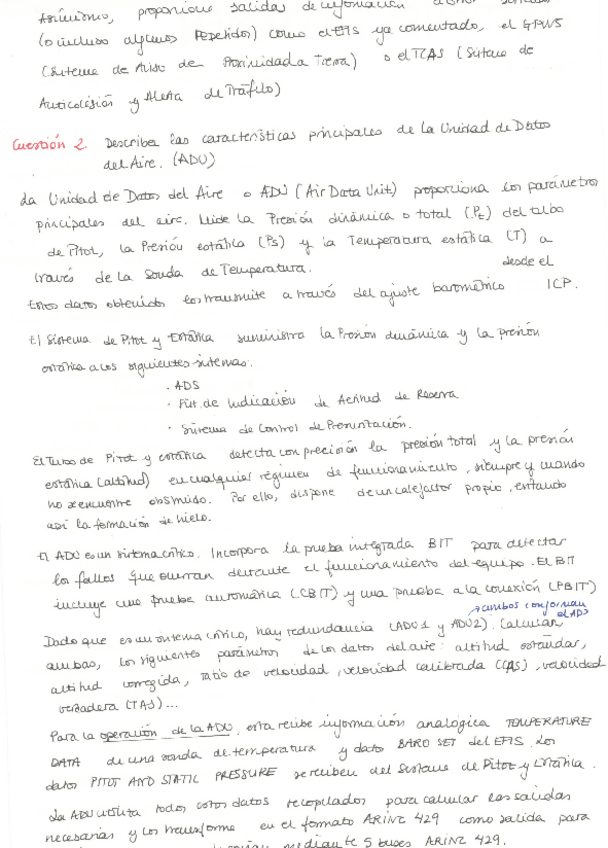 Asimismo, proporciona salidas de información
(o incluso algunos repetidos) como el EFIS ya comentado, el GPWS
(Sistema de Aviso de Proximidad a Tierra) o el TCAS (Sistema de
Anticolisión y Alerta de Tráfico)
Cuestión 2. Describa las características principales de la Unidad de Datos
del Aire. (ADU)
La Unidad de Datos del Aire o ADU (Air Data Unit) proporciona los parámetros
principales del aire. Mide la Presión dinámica o total (Pt) del tubo
de Pitot, la Presión estática (Ps) y la Temperatura estática (T) a
través de la Sonda de Temperatura.
desde el
Estos datos obtenidos los transmite a través del ajuste barométrico ICP.
El Sistema de Pitot y Estática suministra la Presión dinámica y la presión
estática a los siguientes sistemas:
· ADS
· Sist. de Indicación de Actitud de Reserva
· Sistema de Control de Presurización.
El Tubo de Pitot y estática detecta con precisión la presión total y la presión
estática (altitud) en cualquier régimen de funcionamiento, siempre y cuando
no se encuentre obstruido. Por ello, dispone de un calefactor propio, evitando
así la formación de hielo.
El ADU es un sistema crítico. Incorpora la prueba integrada BIT para detectar
los fallos que ocurran durante el funcionamiento del equipo. El BIT
incluye una prueba automática (CBIT) y una prueba a la conexión (PBIT)
→ ambos conforman
el ADS
Dado que es un sistema crítico, hay redundancia (ADU1 y ADU2). Calculan,
ambas, los siguientes parámetros de los datos del aire: altitud estándar,
altitud corregida, ratio de velocidad, velocidad calibrada (CAS), velocidad
verdadera (TAS)...
Para la operación de la ADU, esta recibe información analógica TEMPERATURE
DATA de una sonda de temperatura y datos BARO SET del EFIS. Los
datos PITOT AND STATIC PRESSURE se reciben del Sistema de Pitot y Estática.
La ADU utiliza todos estos datos recopilados para calcular las salidas
necesarias y los transforma en el formato ARINC 429 como salida para
mediante 5 buses ARINC 429.